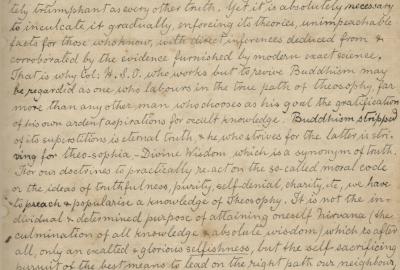 tely triumphant as every other truth. Yet it is absolutely necessary
to inculcate it gradually, enforcing its theories, unimpeachable
facts for those who know, with direct inferences deduced from &
corroborated by the evidence furnished by modern exact science.
That is why Col: H. S. O. who works but to revive Buddhism may
be regarded as one who labours in the true path of theosophy, far
more than any other man who chooses as his goal the gratification
of his own ardent aspirations for occult knowledge. Buddhism stripped
of its supirstitions is eternal truth, & he who strives for the latter is stri-
ving for theo-sophia - Divine Wisdom which is a synonym of truth.
For our doctrines to practically re-act on the so-called moral code
or the ideas of truthfulness, purity, self-denial, charity, etc, we have
to preach & popularise a knowledge of Theosophy. It is not the in-
dividual & determined purpose of attaining oneself Nirvana (the
culmination of all knowledge & absolute wisdom) which is after
all, only an exalted & glorious selfishness, but the self-sacrificing
pursuit of the best means to lead on the right path our neighbour,